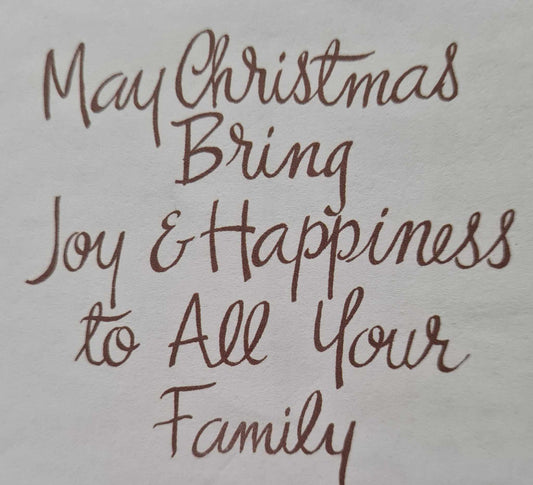 May Christmas
Bring
Joy & Happiness
to All Your
Family